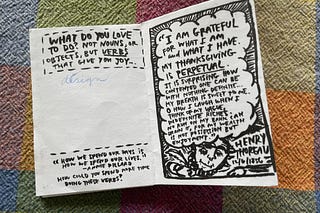 WHAT DO YOU LOVE
TO DO? NOT NOUNS, OR
OBJECTS, BUT VERBS
THAT GIVE YOU JOY...
design
"HOW WE SPEND OUR DAYS IS
HOW WE SPEND OUR LIVES."
-ANNIE DILLARD
HOW COULD YOU SPEND MORE TIME
DOING THESE VERBS?
"I AM GRATEFUL
FOR WHAT I AM
AND WHAT I HAVE.
MY THANKSGIVING
IS PERPETUAL.
IT IS SURPRISING HOW
CONTENTED ONE CAN BE
WITH NOTHING DEFINITE...
MY BREATH IS SWEET TO ME.
O HOW I LAUGH WHEN I
THINK OF MY VAGUE,
INDEFINITE RICHES.
NO RUN ON MY BANK CAN
DRAIN IT, FOR MY WEALTH
IS NOT POSSESSION BUT
ENJOYMENT."
HENRY
THOREAU